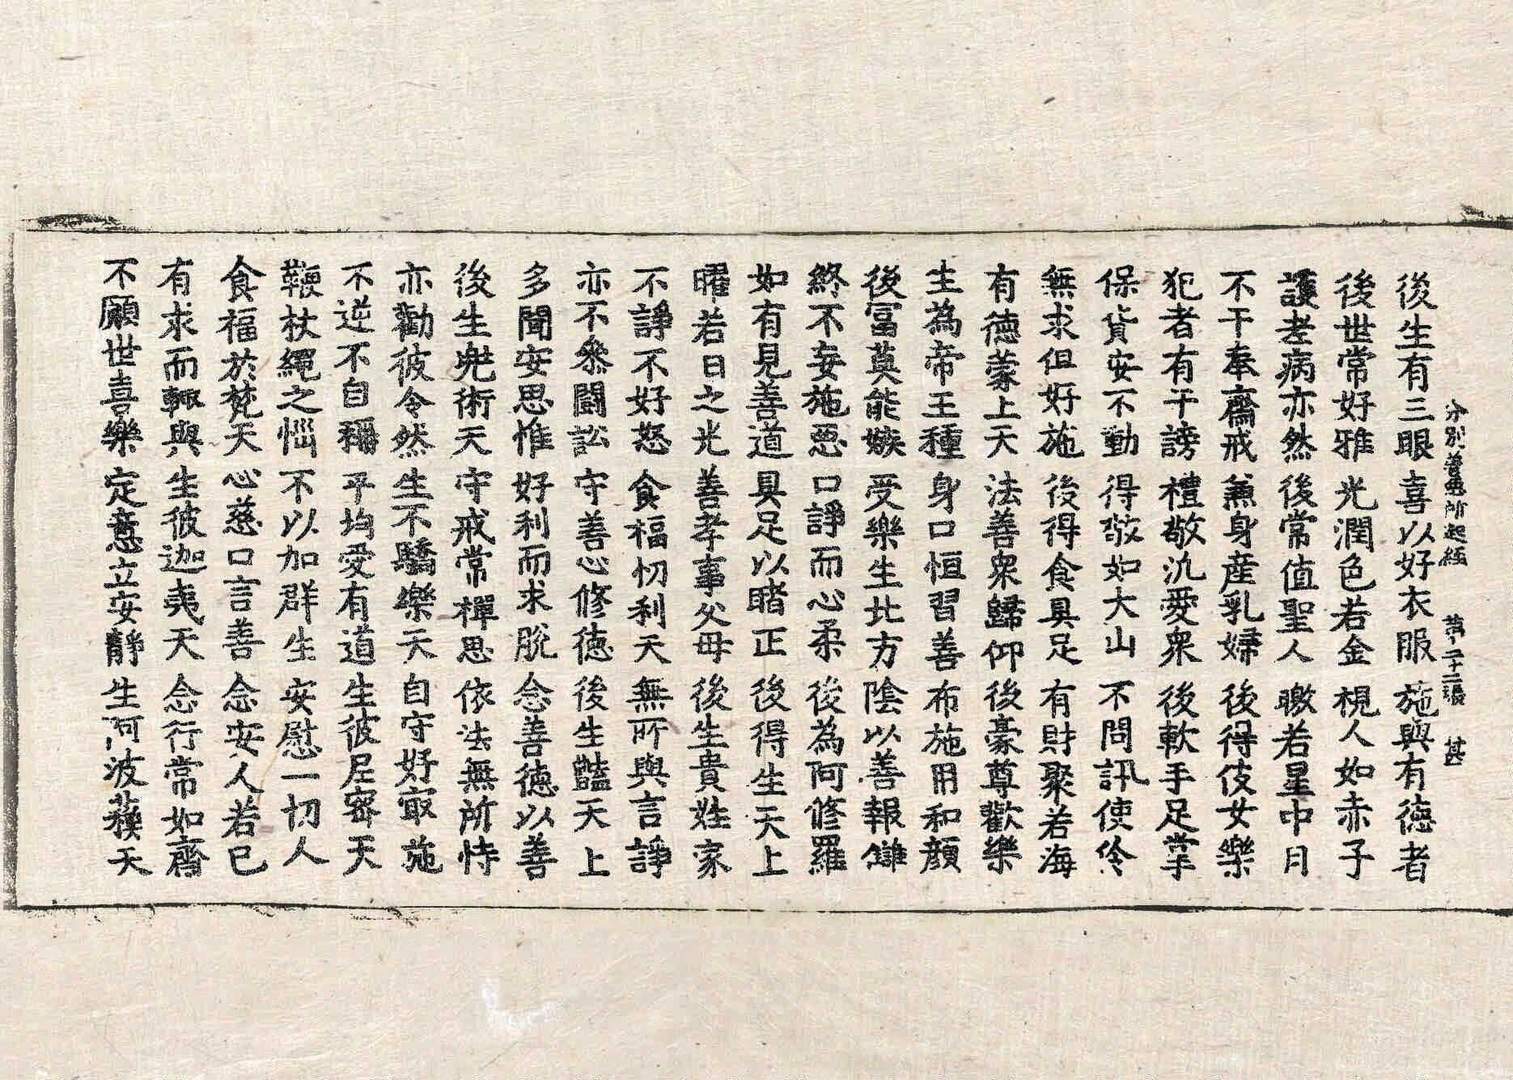 分別善惡所起經 第二十二張 甚
後生有三眼 喜以好衣服 施與有德者
後世常好雅 光潤色若金 視人如赤子
護老病亦然 後常值聖人 曒若星中月
不干奉齋戒 兼身產乳婦 後得伎女樂
犯者有干謗 禮敬汎愛衆 後軟手足掌
保貨安不動 得敬如大山 不問訊使伶
無求但好施 後得食具足 有財聚若海
有德蒙上天 法善衆歸仰 後豪尊歡樂
生為帝王種 身口恒習善 布施用和顏
後冨莫能嫉 受樂生比方 陰以善報讎
終不妄施惡 口諍而心柔 後為阿修羅
如有見善道 具足以睹正 後得生天上
曜若日之光 善孝事父母 後生貴姓家
不諍不好怒 食福忉利天 無所與言諍
亦不叅鬪訟 守善心修德 後生豔天上
多聞安思惟 好利而求脫 念善德以善
後生兠術天 守戒常禪思 依法無所恃
亦勸彼令然 生不驕樂天 自守好㝡施
不逆不自稱 平均愛有道 生彼尼宻天
鞭杖繩之惱 不以加群生 安慰一切人
食福於梵天 心慈口言善 念安人若已
有求而輙與 生彼迦夷天 念行常如齋
不願世喜樂 定意立安靜 生阿波蘱天